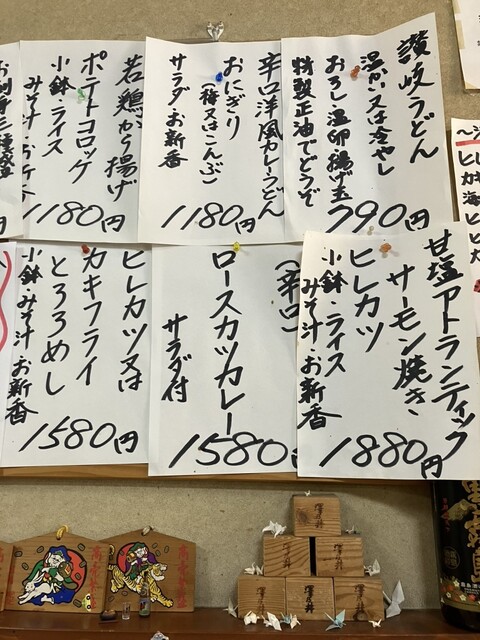 讃岐うどん
温かい又は冷やし
おろし温卵揚げ玉
特製正油でどうぞ
790円
辛口洋風カレーうどん
おにぎり
(梅又はこんぶ)
サラダ お新香
1180円
若鶏から揚げ
ポテトコロッケ
小鉢・ライス
みそ汁 お新香
1180円
甘塩アトランティック
サーモン焼き、
ヒレカツ
小鉢・ライス
みそ汁・お新香
1880円
(辛口)
ロースカツカレー
サラダ付
1580円
ヒレカツ又は
カキフライ
とろろめし
小鉢 みそ汁 お新香
1580円
澤乃井
澤乃井
澤乃井
澤乃井
澤乃井